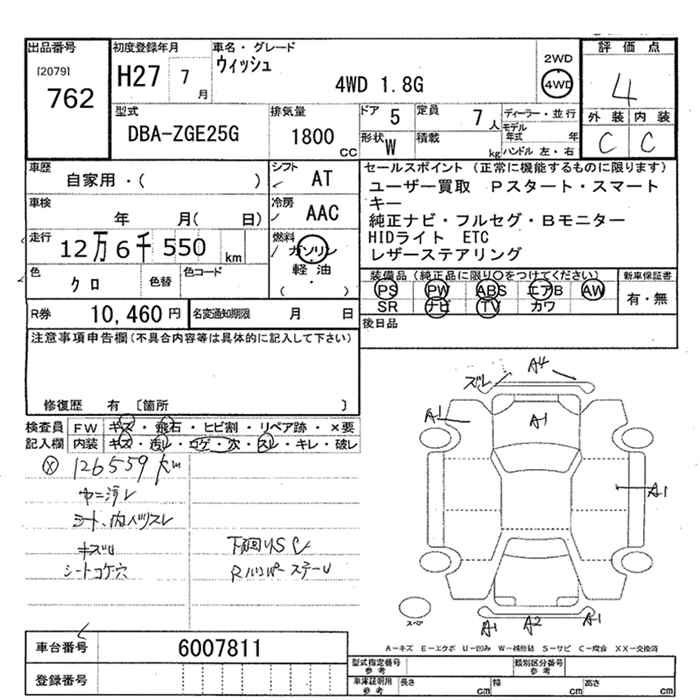 出品番号
[2079]
762
初度登録年月
H27 7 月
車名・グレード
ウィッシュ
4WD 1.8G
2WD
4WD
評価点
4
外装 内装
C C
型式
DBA-ZGE25G
排気量
1800 CC
ドア 5
定員 7 人
形状 W
積載 kg
ディーラー・並行
モデル年式 年
ハンドル 左・右
車歴
自家用・( )
シフト AT
車検
年 月( 日)
冷房 AAC
走行
12万6千550 km
燃料 ガソリン
軽油
・
( )
色 クロ 色替 色コード
R券 10,460円 名変通知期限 月 日
セールスポイント (正常に機能するものに限ります)
ユーザー買取 Pスタート・スマート
キー
純正ナビ・フルセグ・Bモニター
HIDライト ETC
レザーステアリング
装備品(純正品に限り〇をつけてください)
新車保証書
PS PW ABS エアB AW
SR ナビ TV カワ
有・無
後日品
注意事項申告欄(不具合内容等は具体的に記入して下さい)
修復歴 有 〔箇所 〕
検査員 FW キズ・飛石・ヒビ割・リペア跡・×要
記入欄 内装 キズ・汚レ・コゲ・穴・スレ・キレ・破レ
126559 km
シート、内ハリスレ
キズ
シートコゲ穴
下回りS
Rバンパーステー
ズレ A4
A1 A1
A1
A1 A2 A1
スペア
A－キズ E－エクボ U－凹み W－補修跡 S－サビ C－腐食 XX－交換済
車台番号 6007811
登録番号
型式指定番号 参考
類別区分番号 参考
車庫証明用 参考 長さ cm 幅 cm 高さ cm